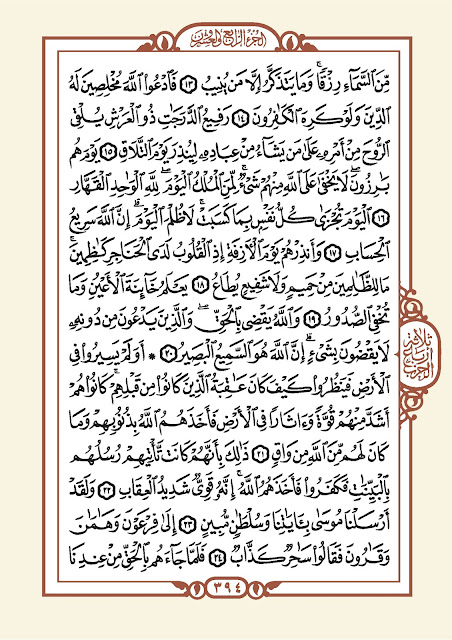 الجزء الرابع والعشرون
مِّنَ ٱلسَّمَآءِ رِزْقًا ۚ وَمَا يَتَذَكَّرُ إِلَّا مَن يُنِيبُ ١٣ فَٱدْعُوا۟ ٱللَّهَ مُخْلِصِينَ لَهُ
ٱلدِّينَ وَلَوْ كَرِهَ ٱلْكَٰفِرُونَ ١٤ رَفِيعُ ٱلدَّرَجَٰتِ ذُو ٱلْعَرْشِ يُلْقِى
ٱلرُّوحَ مِنْ أَمْرِهِۦ عَلَىٰ مَن يَشَآءُ مِنْ عِبَادِهِۦ لِيُنذِرَ يَوْمَ ٱلتَّلَاقِ ١٥ يَوْمَ هُم
بَٰرِزُونَ ۖ لَا يَخْفَىٰ عَلَى ٱللَّهِ مِنْهُمْ شَىْءٌ ۚ لِّمَنِ ٱلْمُلْكُ ٱلْيَوْمَ ۖ لِلَّهِ ٱلْوَٰحِدِ ٱلْقَهَّارِ
١٦ ٱلْيَوْمَ تُجْزَىٰ كُلُّ نَفْسٍۭ بِمَا كَسَبَتْ ۚ لَا ظُلْمَ ٱلْيَوْمَ ۚ إِنَّ ٱللَّهَ سَرِيعُ
ٱلْحِسَابِ ١٧ وَأَنذِرْهُمْ يَوْمَ ٱلْءَازِفَةِ إِذِ ٱلْقُلُوبُ لَدَى ٱلْحَنَاجِرِ كَٰظِمِينَ ۚ
مَا لِلظَّٰلِمِينَ مِنْ حَمِيمٍ وَلَا شَفِيعٍ يُطَاعُ ١٨ يَعْلَمُ خَآئِنَةَ ٱلْأَعْيُنِ وَمَا
تُخْفِى ٱلصُّدُورُ ١٩ وَٱللَّهُ يَقْضِى بِٱلْحَقِّ ۖ وَٱلَّذِينَ يَدْعُونَ مِن دُونِهِۦ
لَا يَقْضُونَ بِشَىْءٍ ۗ إِنَّ ٱللَّهَ هُوَ ٱلسَّمِيعُ ٱلْبَصِيرُ ٢٠ * أَوَلَمْ يَسِيرُوا۟ فِى
ٱلْأَرْضِ فَيَنظُرُوا۟ كَيْفَ كَانَ عَٰقِبَةُ ٱلَّذِينَ كَانُوا۟ مِن قَبْلِهِمْ ۚ كَانُوا۟ هُمْ
أَشَدَّ مِنْهُمْ قُوَّةً وَءَاثَارًا فِى ٱلْأَرْضِ فَأَخَذَهُمُ ٱللَّهُ بِذُنُوبِهِمْ وَمَا
كَانَ لَهُم مِّنَ ٱللَّهِ مِن وَاقٍ ٢١ ذَٰلِكَ بِأَنَّهُمْ كَانَت تَّأْتِيهِمْ رُسُلُهُم
بِٱلْبَيِّنَٰتِ فَكَفَرُوا۟ فَأَخَذَهُمُ ٱللَّهُ ۚ إِنَّهُۥ قَوِىٌّ شَدِيدُ ٱلْعِقَابِ ٢٢ وَلَقَدْ
أَرْسَلْنَا مُوسَىٰ بِـَٔايَٰتِنَا وَسُلْطَٰنٍ مُّبِينٍ ٢٣ إِلَىٰ فِرْعَوْنَ وَهَٰمَٰنَ
وَقَٰرُونَ فَقَالُوا۟ سَٰحِرٌ كَذَّابٌ ٢٤ فَلَمَّا جَآءَهُم بِٱلْحَقِّ مِنْ عِندِنَا
ثلاثة
أرباع
الحزب
٣٩٤